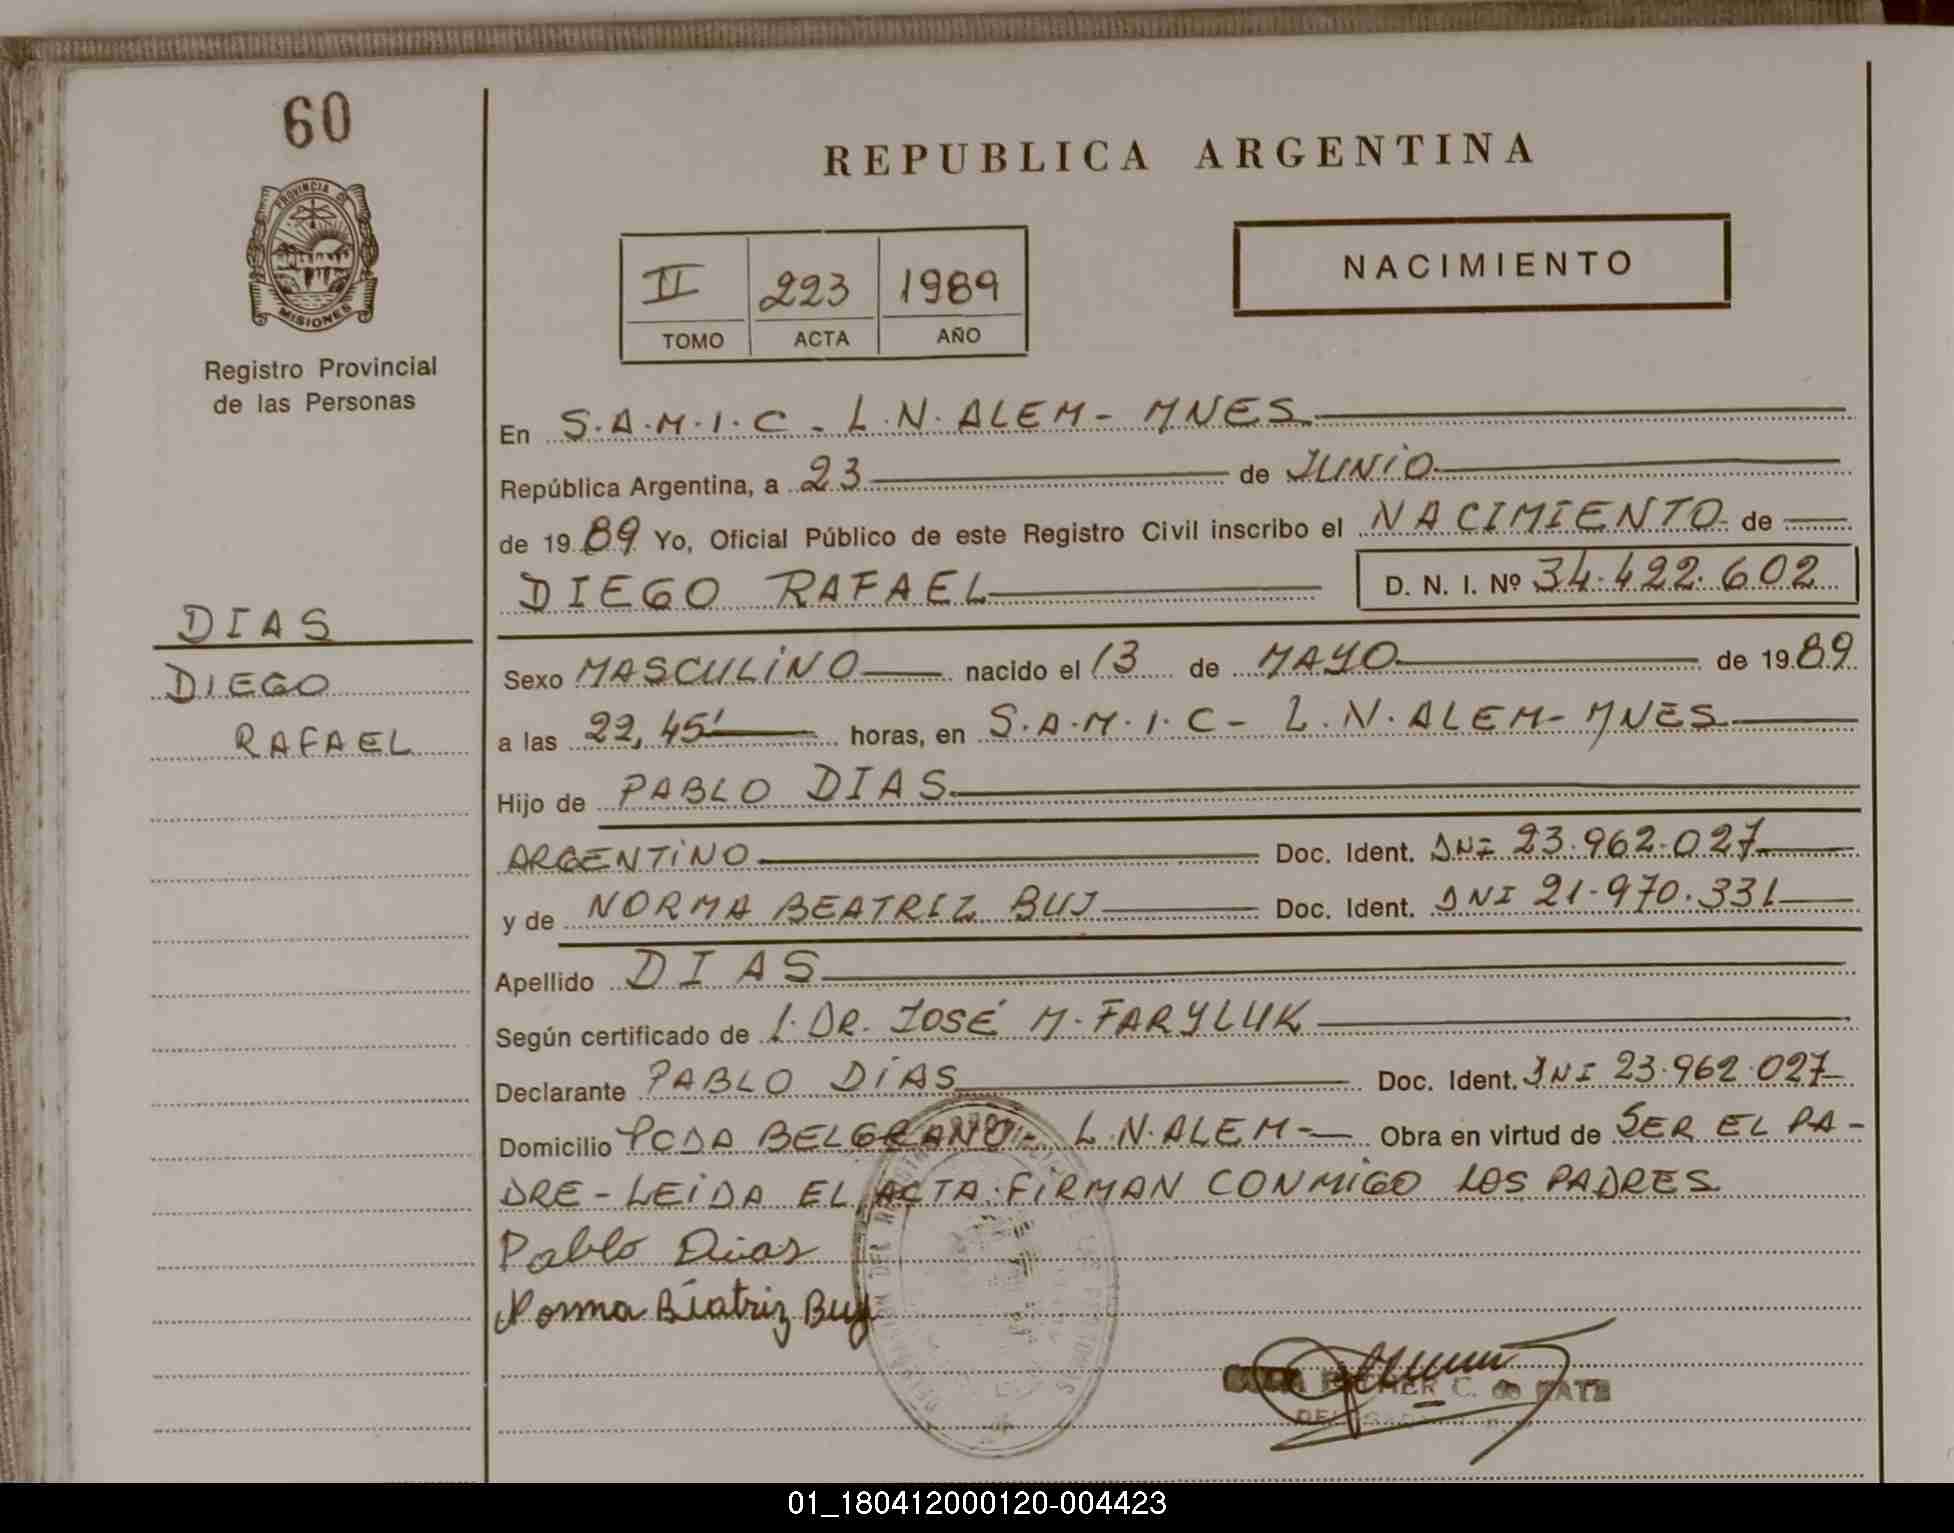 60
PROVINCIA DE
MISIONES
Registro Provincial
de las Personas
DIAS
DIEGO
RAFAEL
REPUBLICA ARGENTINA
II 223 1989
TOMO ACTA AÑO
NACIMIENTO
En S.A.M.I.C - L.N. ALEM - MNES
República Argentina, a 23 de JUNIO
de 1989 Yo, Oficial Público de este Registro Civil inscribo el NACIMIENTO de
DIEGO RAFAEL D. N. I. Nº 34.422.602
Sexo MASCULINO nacido el 13 de MAYO de 1989
a las 22,45' horas, en S.A.M.I.C - L.N. ALEM - MNES
Hijo de PABLO DIAS
ARGENTINO Doc. Ident. DNI 23.962.027
y de NORMA BEATRIZ BUJ Doc. Ident. DNI 21.970.331
Apellido DIAS
Según certificado de 1. DR. JOSÉ M. FARYLUK
Declarante PABLO DIAS Doc. Ident. DNI 23.962.027
Domicilio PCDA BELGRANO - L.N. ALEM - Obra en virtud de SER EL PA-
DRE - LEIDA EL ACTA FIRMAN CONMIGO LOS PADRES
Pablo Dias
Norma Beatriz Buj
C. de
01_180412000120-004423